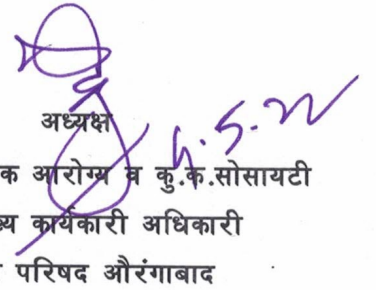 अध्यक्ष
क आरोग्य व कु.क.सोसायटी
कार्यकारी अधिकारी
परिषद औरंगाबाद